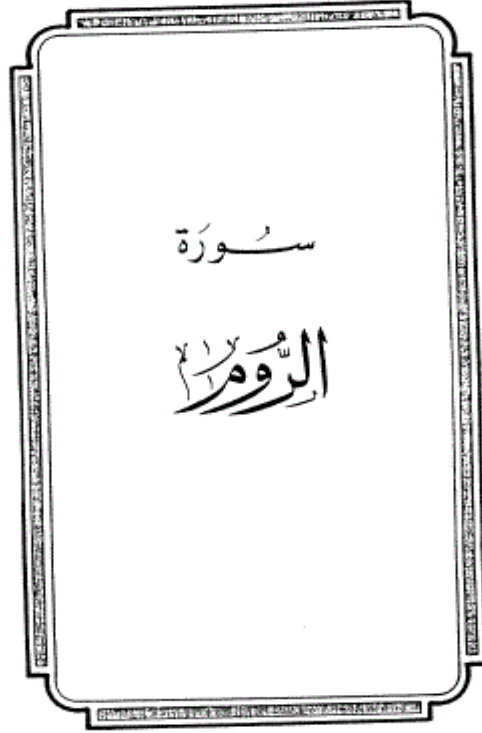 سُورَة
الرُّوم